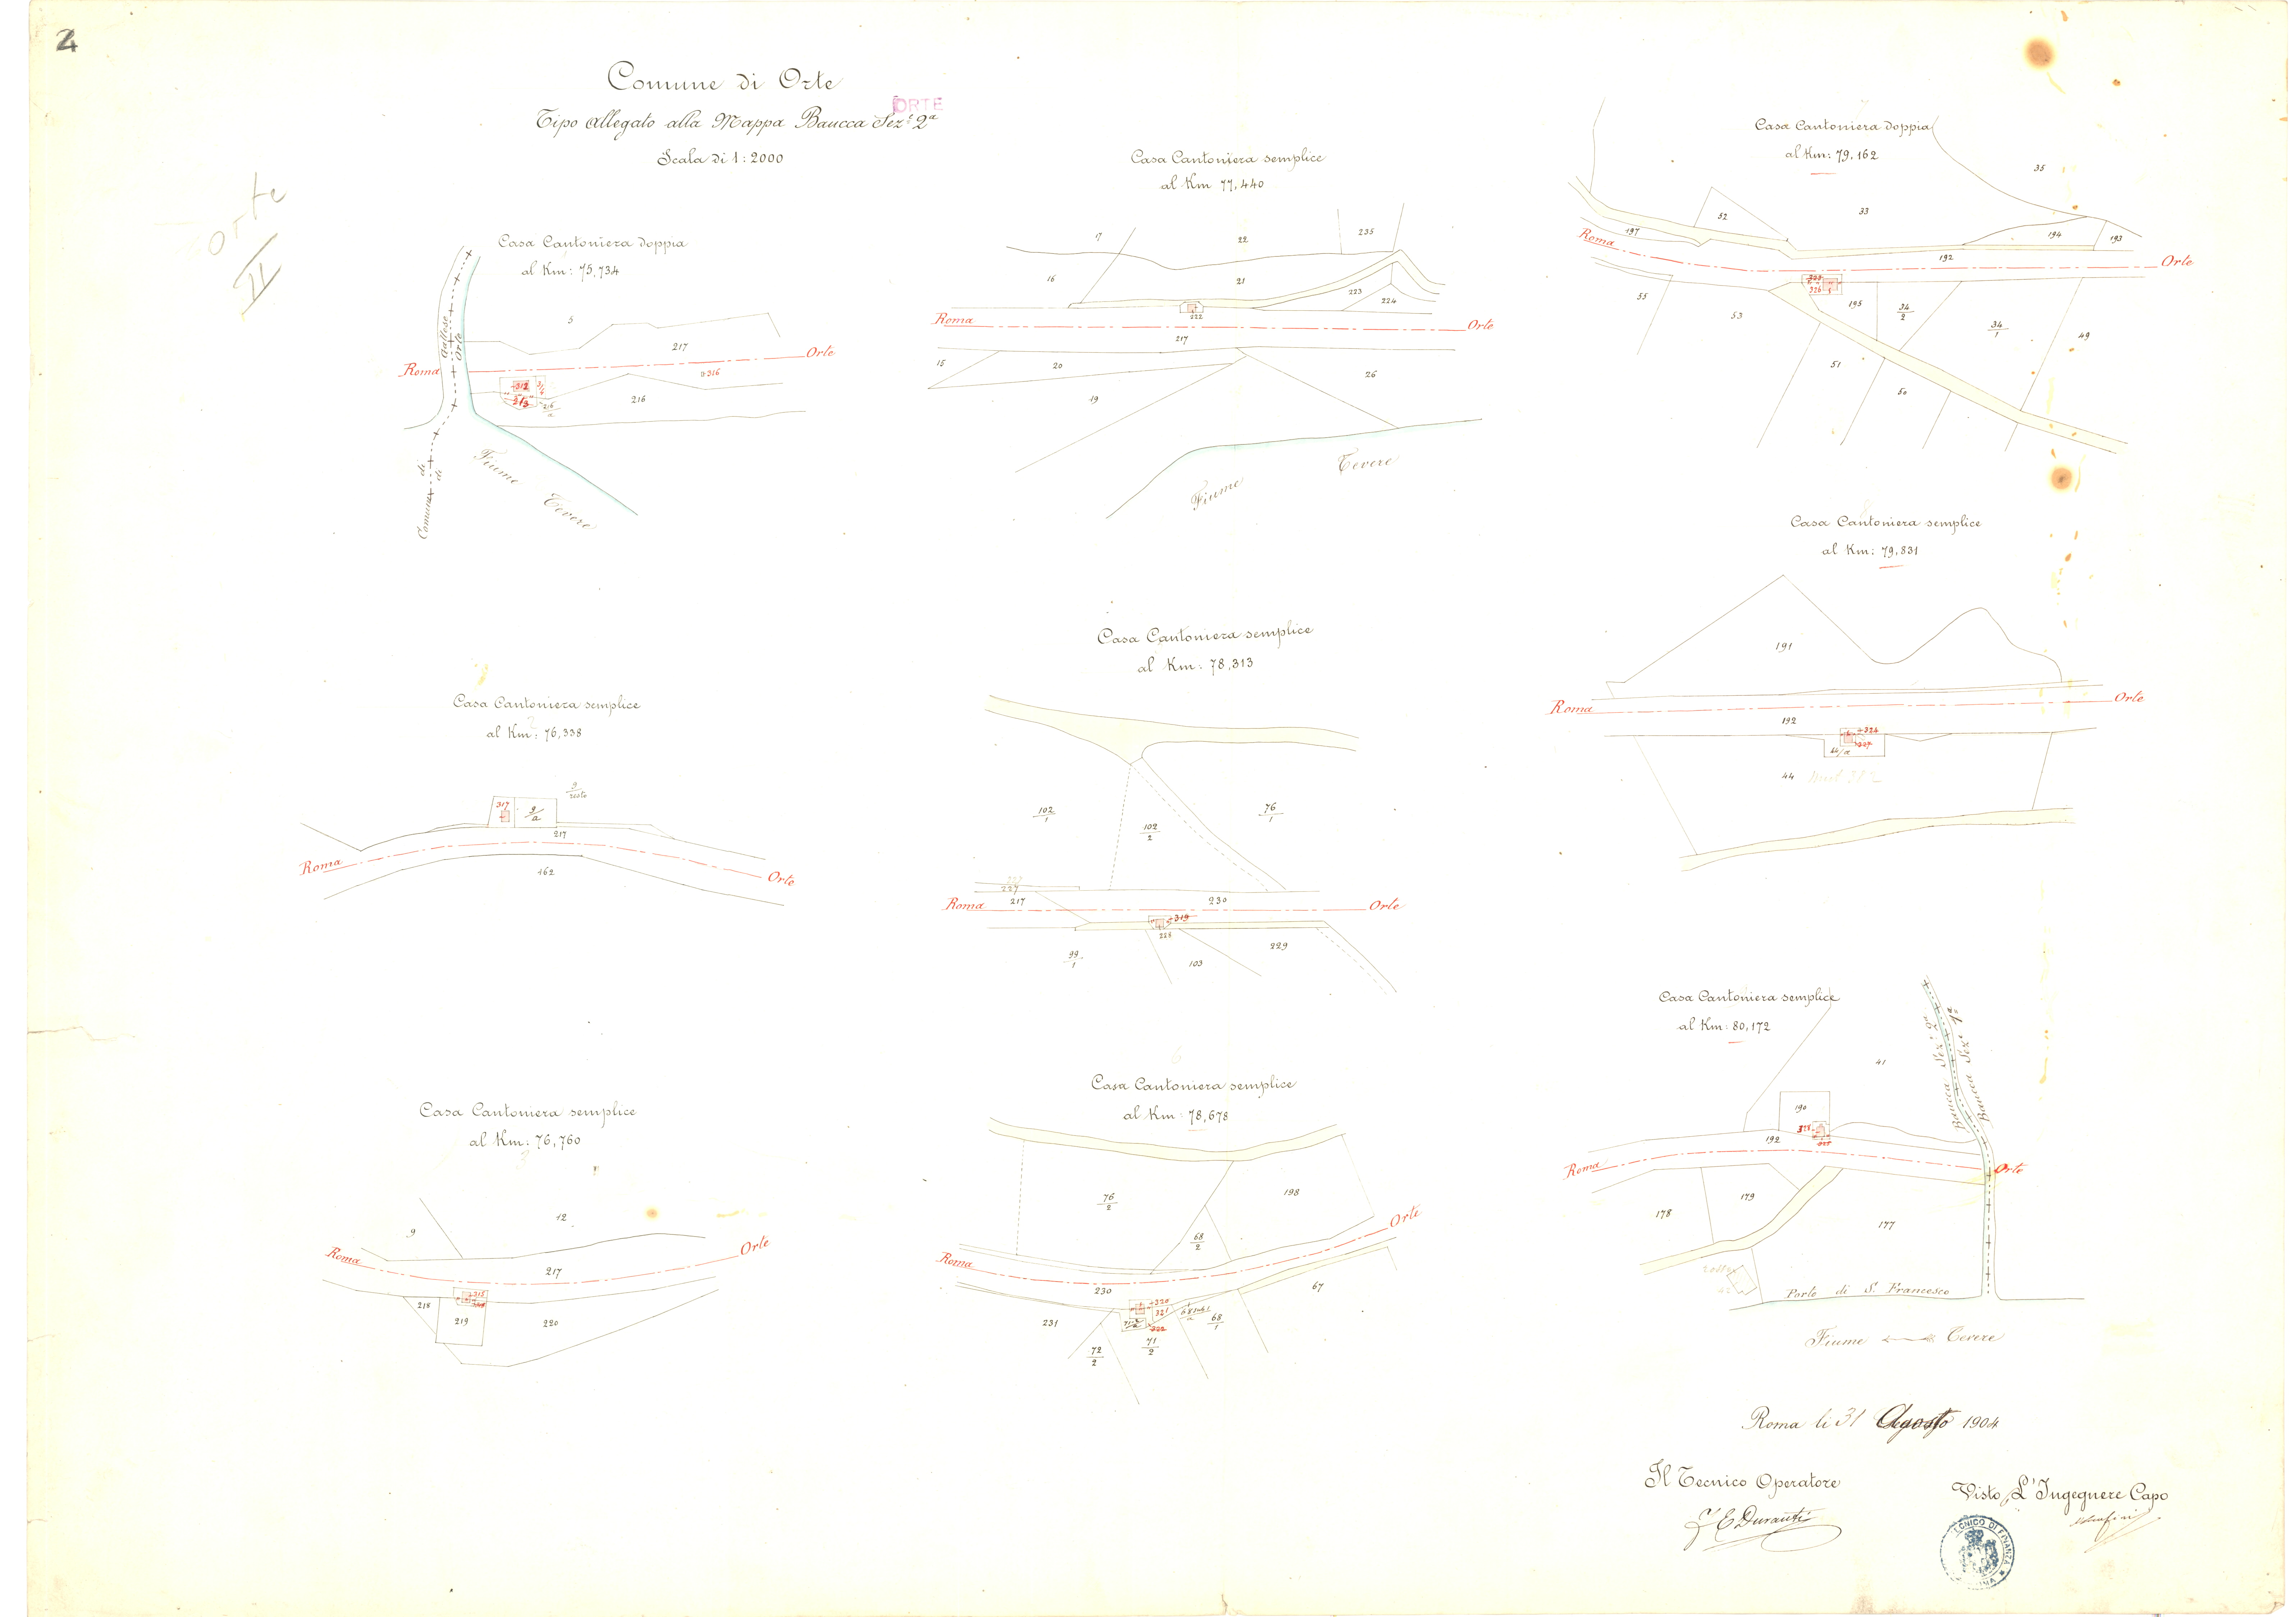 2
Comune di Orte
ORTE
Tipo Allegato alla Mappa Baucca Sez.e 2a
Scala di 1:2000
Orte
II
Casa Cantoniera doppia
al Km: 75,734
Gallese
Orte
5
217
Roma
Orte
316
312
3/4
213
216/a
216
Comune di
di
Fiume Tevere
Casa Cantoniera semplice
al Km: 76,338
9/resto
317
9/a
217
Roma
Orte
162
Casa Cantoniera semplice
al Km: 76,760
9
12
Roma
Orte
217
218
219
220
Casa Cantoniera semplice
al Km 77,440
17
22
235
16
21
223
224
222
Roma
Orte
217
15
20
26
19
Fiume Tevere
Casa Cantoniera semplice
al Km: 78,313
102/1
102/2
76/1
227
217
230
Roma
Orte
319
228
99/1
103
229
Casa Cantoniera semplice
al Km: 78,678
76/2
198
68/2
Orte
Roma
230
320
321
322
231
68/1
67
72/2
71/2
Casa Cantoniera doppia
al Km: 79,162
35
52
33
197
194
193
Roma
192
Orte
326
55
53
195
34/2
34/1
49
51
50
Casa Cantoniera semplice
al Km: 79,831
191
Roma
Orte
192
324
44/a
44
Casa Cantoniera semplice
al Km: 80,172
41
Baucca Sez.e 2a
Baucca Sez.e 1a
190
192
Roma
Orte
178
179
177
Porto di S. Francesco
Fiume Tevere
Roma li 31 Agosto 1904
Il Tecnico Operatore
E Duranti
Visto L'Ingegnere Capo
TECNICO DI FINANZA